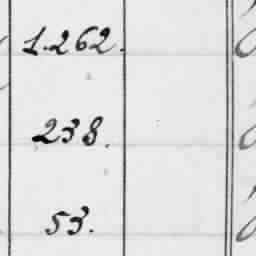 1.262.
238.
53.